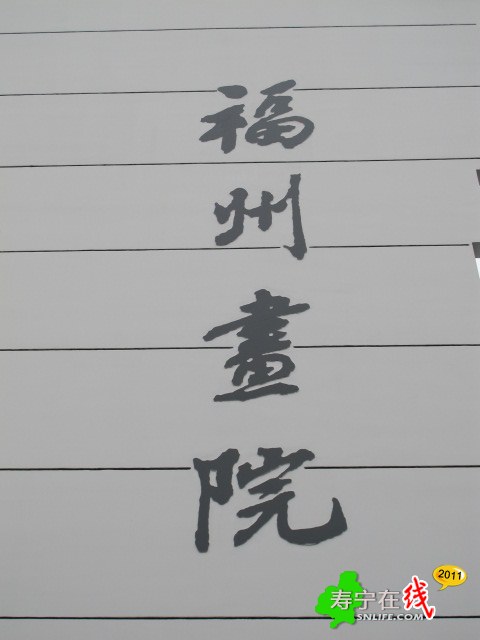 福州畫院
2011
寿宁在线
SNLIFE.COM